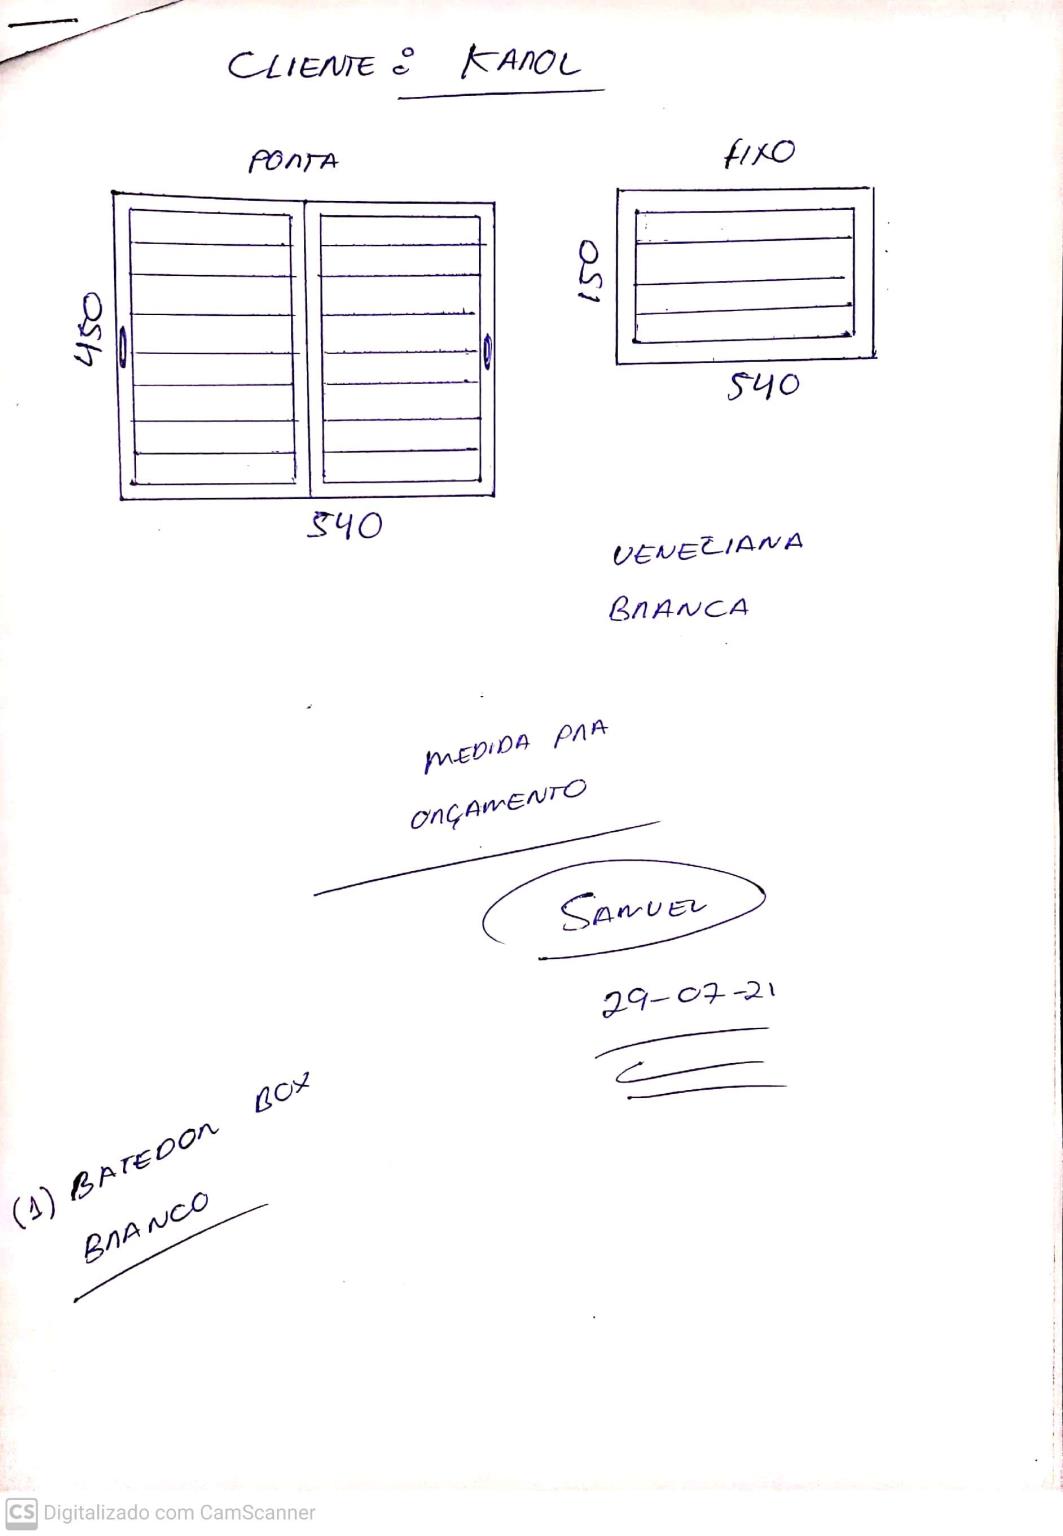 CLIENTE: KAROL
PORTA
FIXO
450
150
540
540
VENEZIANA
BRANCA
MEDIDA PRA
ORÇAMENTO
SAMUEL
29-07-21
(1) BATEDOR BOX
BRANCO
CS Digitalizado com CamScanner